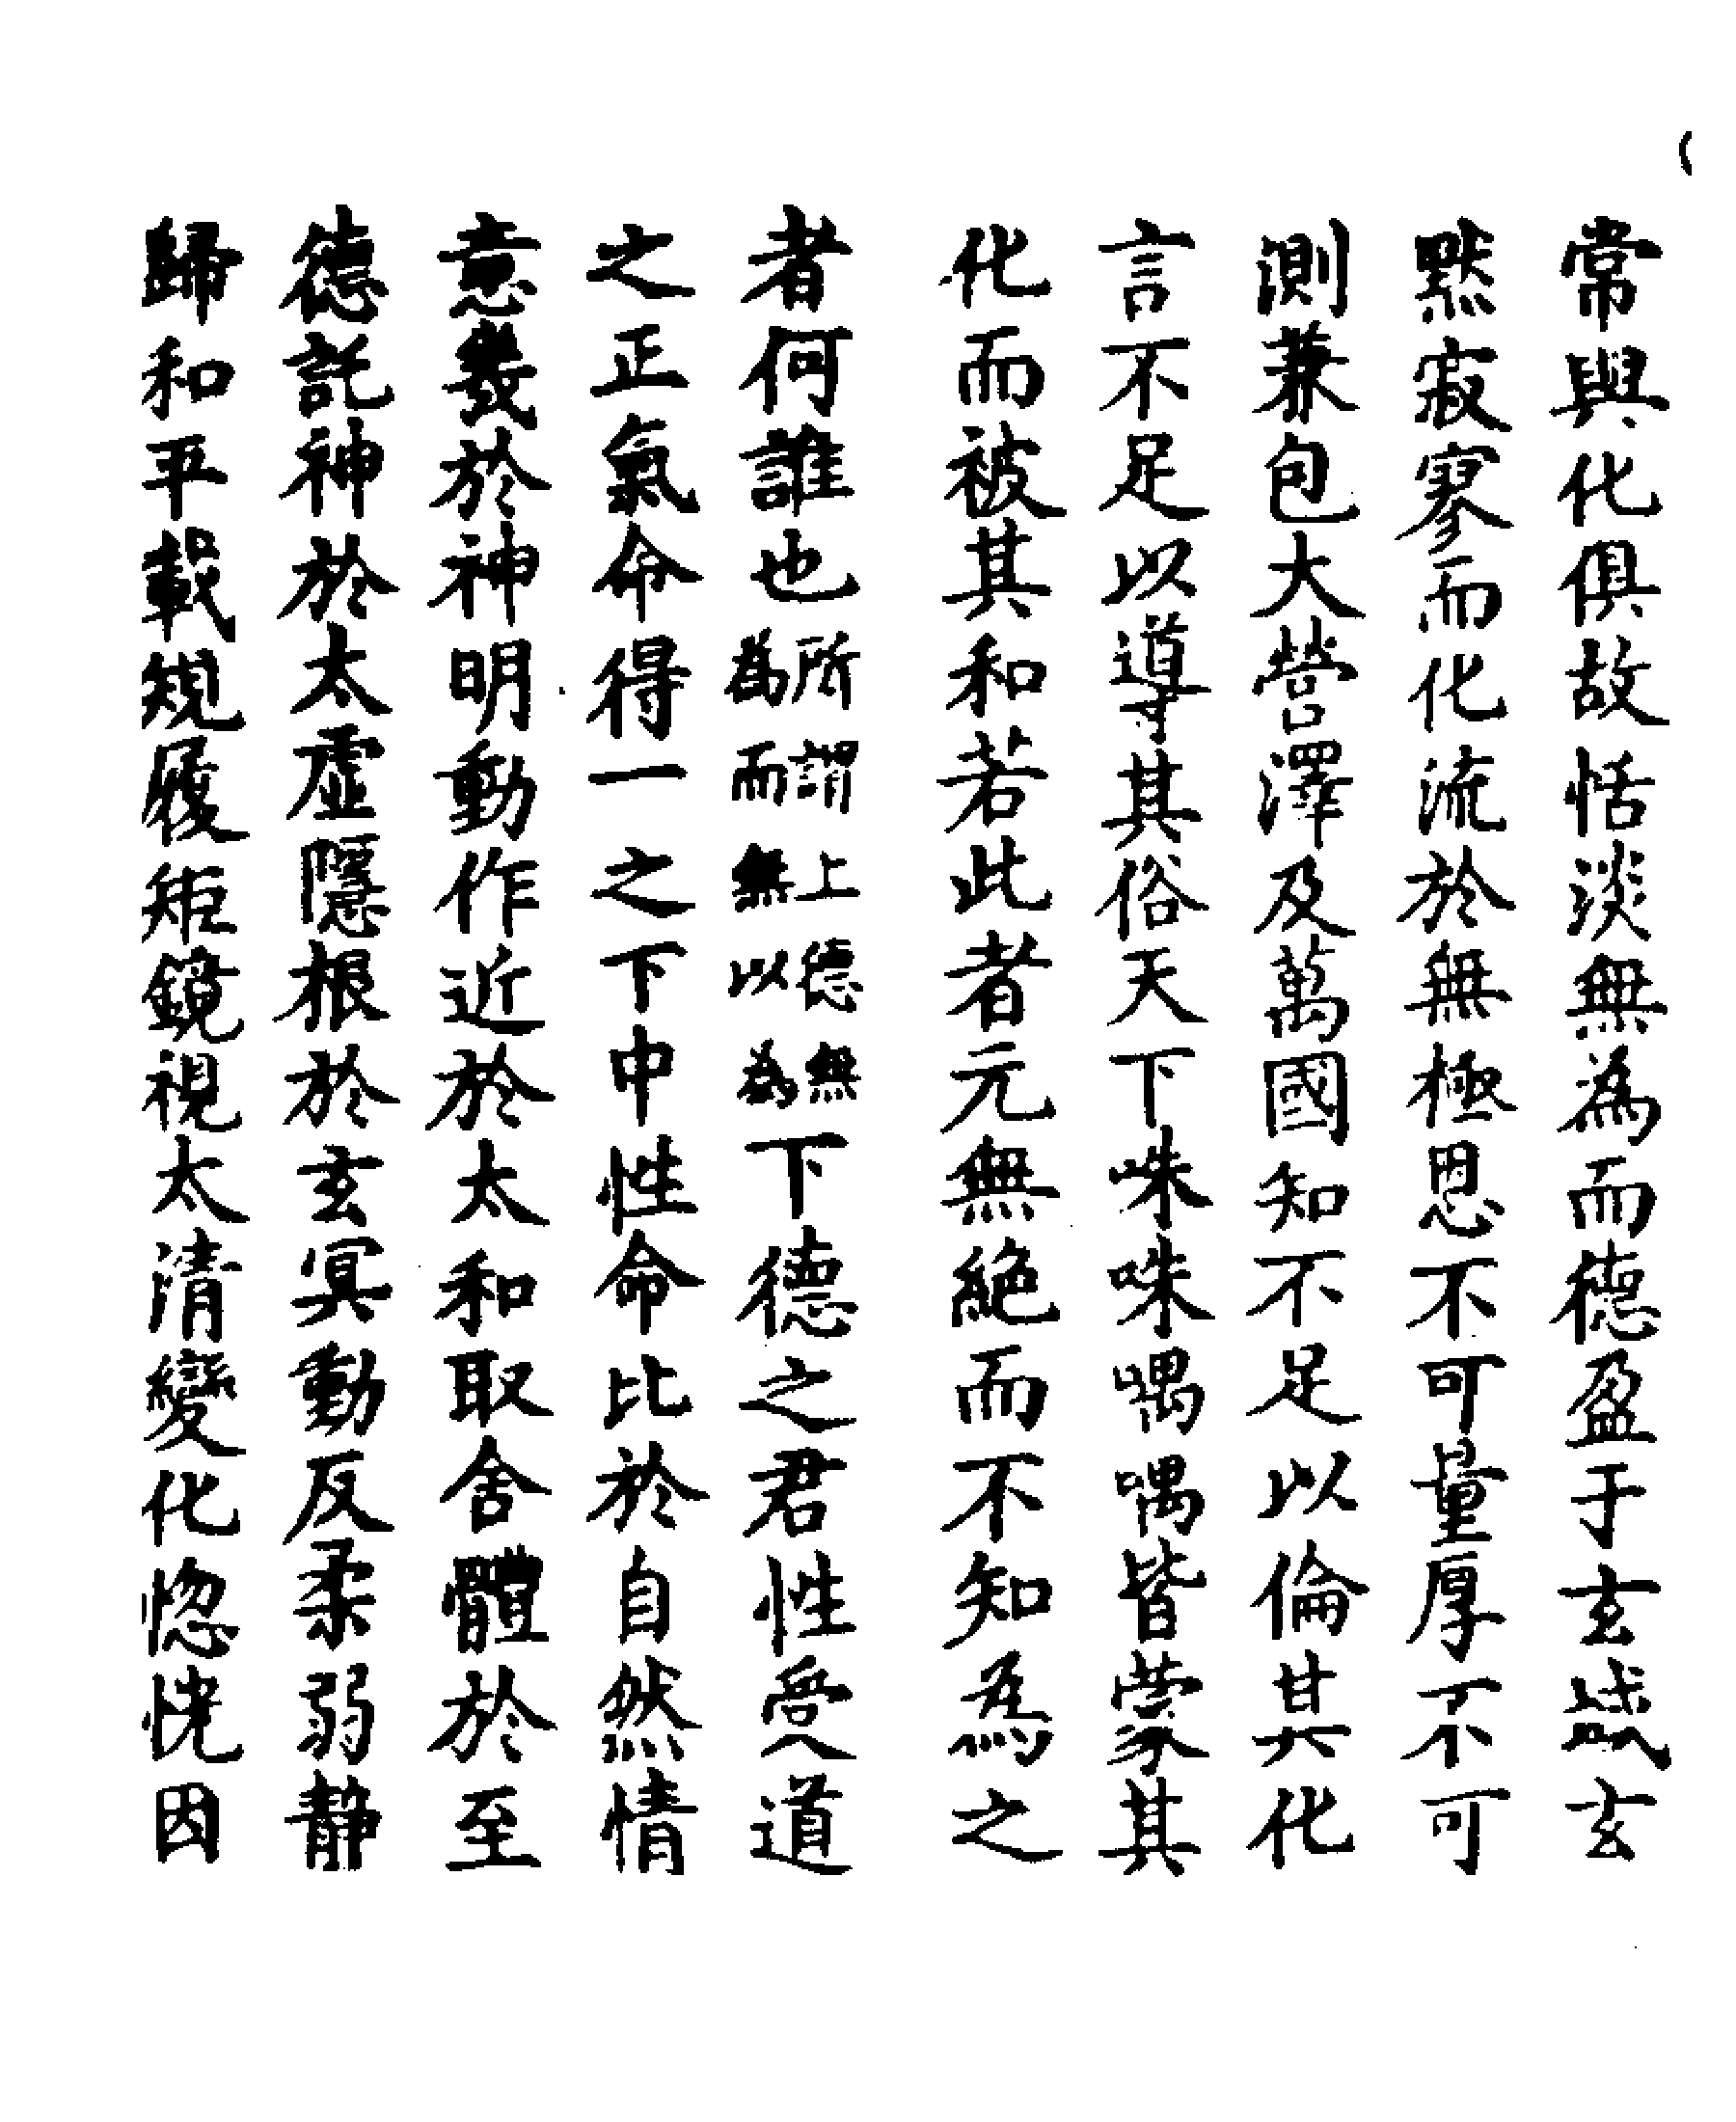 常與化俱故恬淡無為而德盈于玄域玄
黙寂寥而化流於無極恩不可量厚不可
測兼包大營澤及萬國知不足以倫其化
言不足以導其俗天下咮咮喁喁皆蒙其
化而被其和若此者元無絶而不知為之
者何誰也所謂上德無為而無以為下德之君性受道
之正氣命得一之下中性命比於自然情
意幾於神明動作近於太和取舍體於至
德託神於太虛隱根於玄冥動反柔弱静
歸和平載規履矩鏡視太清變化惚恍因